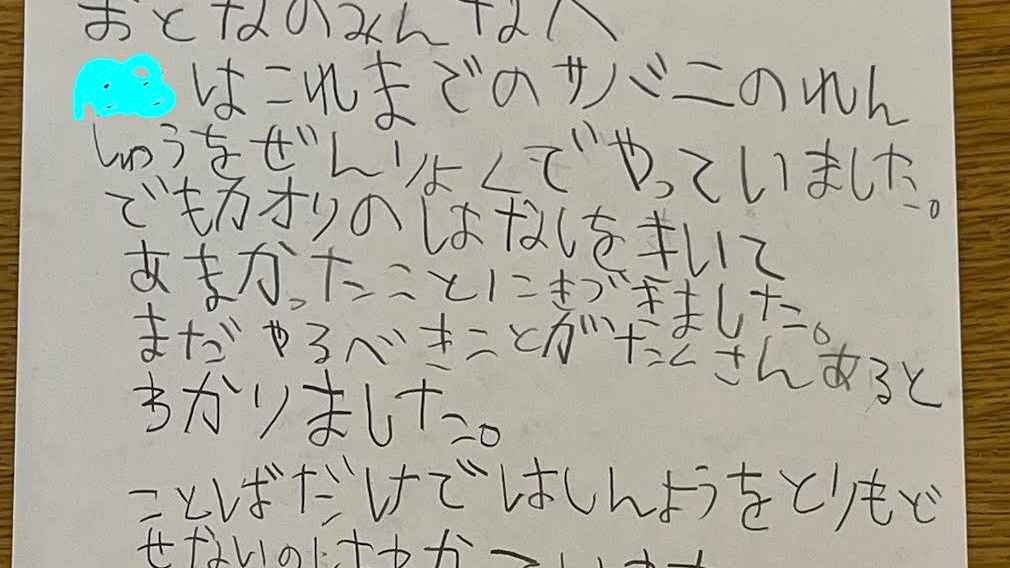 おとなのみんなへ
はこれまでのサバニのれん
しゅうをぜんりょくでやっていました。
でもカオリのはなしをきいて
あまかったことにきづきました。
まだやるべきことがたくさんあると
わかりました。
ことばだけではしんようをとりもど
せないのはわかっています